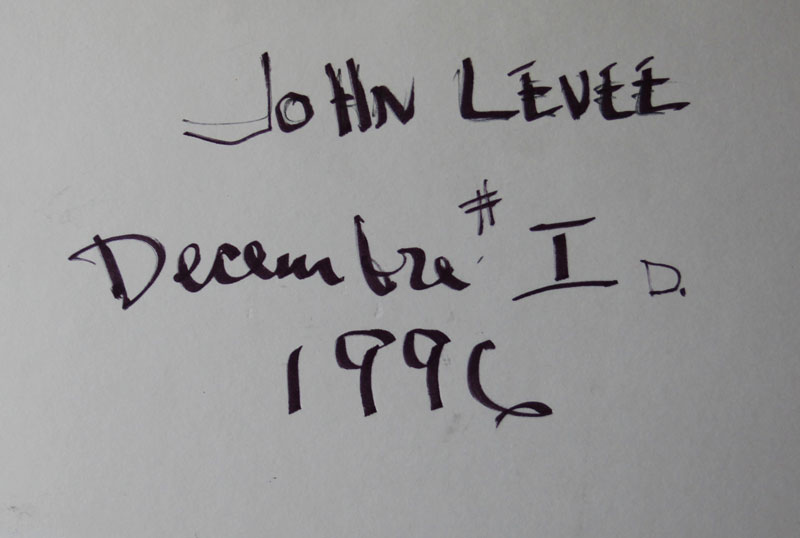 JOHN LEVÉE
Decembre # I D.
1996